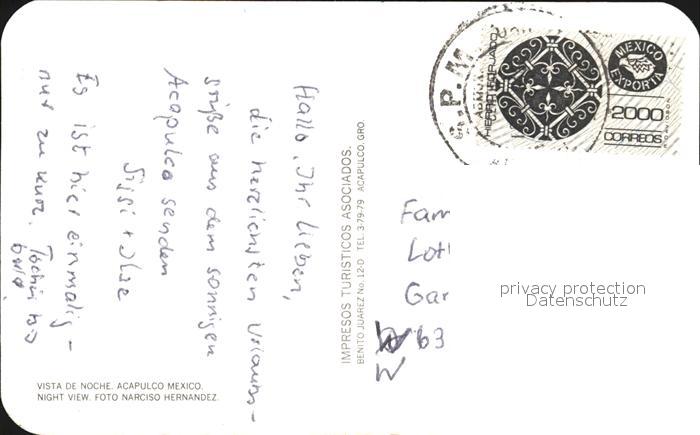 Hallo, Ihr Lieben,
die herzlichsten Urlaubs-
grüße aus dem sonnigen
Acapulco senden
Sigi + Ilse
Es ist hier einmalig -
nur zu kurz. Tschüs
bald
VISTA DE NOCHE. ACAPULCO MEXICO.
NIGHT VIEW. FOTO NARCISO HERNANDEZ.
IMPRESOS TURISTICOS ASOCIADOS.
BENITO JUAREZ No. 12-D TEL. 3-79-79 ACAPULCO, GRO.
MEXICO
EXPORTA
2000
CORREOS
HIERRO FORJADO
Fam
Lot
Gar
63
W
privacy protection
Datenschutz